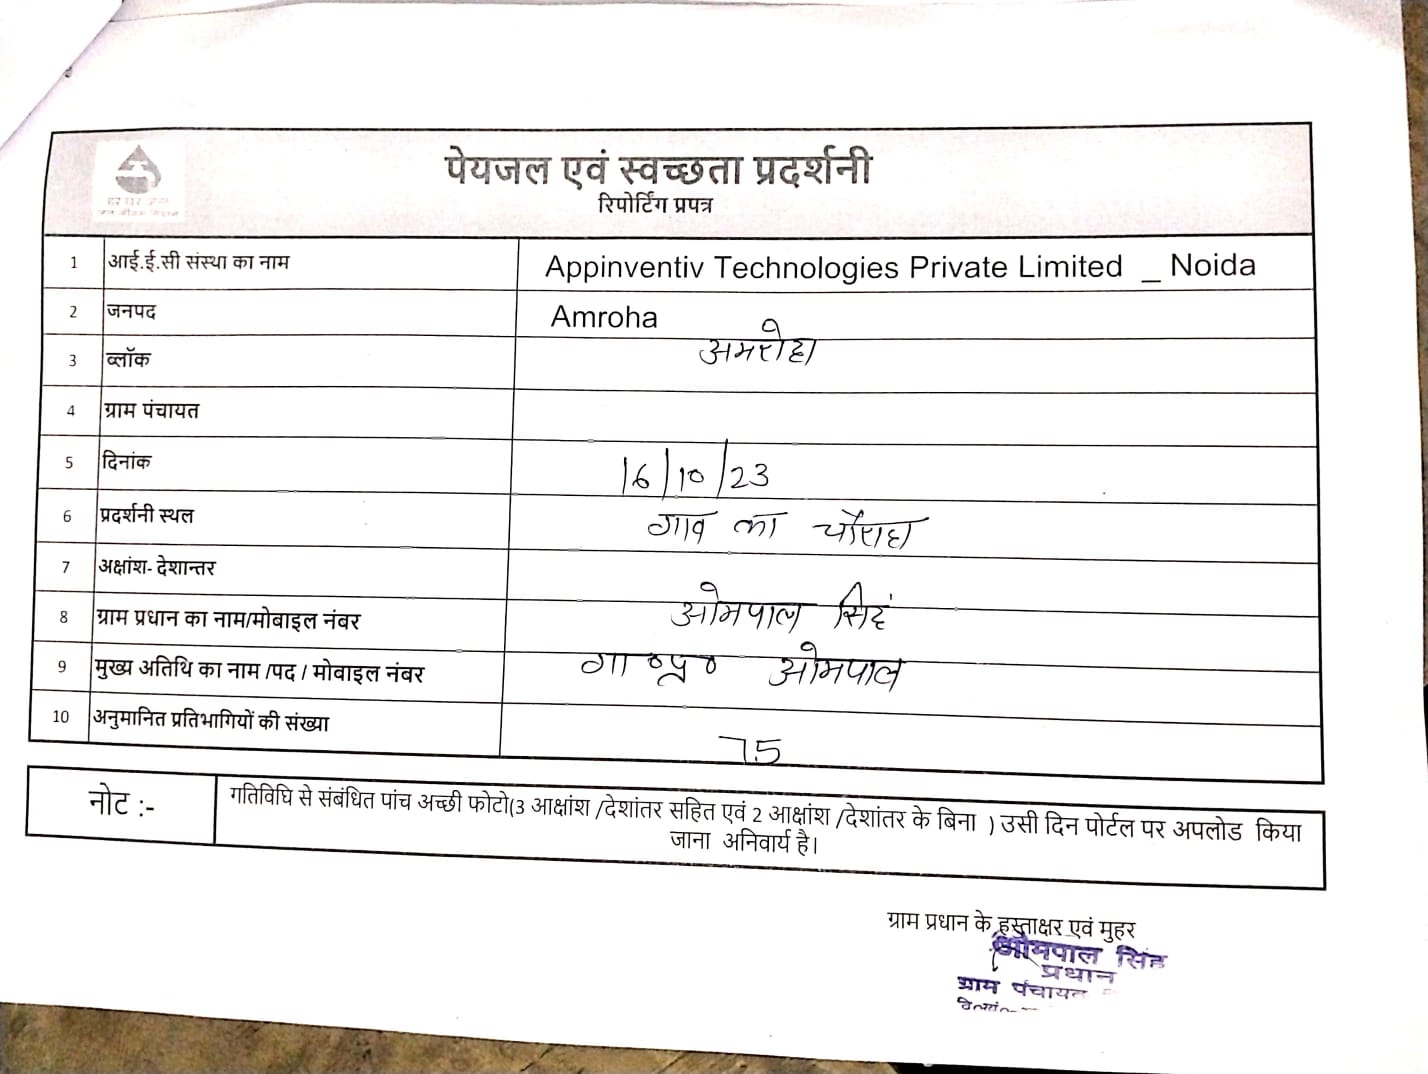 हर घर जल
जल जीवन मिशन
पेयजल एवं स्वच्छता प्रदर्शनी
रिपोर्टिंग प्रपत्र
1 आई.ई.सी संस्था का नाम Appinventiv Technologies Private Limited _ Noida
2 जनपद Amroha
3 ब्लॉक अमरोहा
4 ग्राम पंचायत
5 दिनांक 16/10/23
6 प्रदर्शनी स्थल गाव का चौराहा
7 अक्षांश- देशान्तर
8 ग्राम प्रधान का नाम/मोबाइल नंबर ओमपाल सिहं
9 मुख्य अतिथि का नाम /पद / मोबाइल नंबर गा०प्र० ओमपाल
10 अनुमानित प्रतिभागियों की संख्या 75
नोट :- गतिविधि से संबंधित पांच अच्छी फोटो(3 आक्षांश /देशांतर सहित एवं 2 आक्षांश /देशांतर के बिना ) उसी दिन पोर्टल पर अपलोड किया
जाना अनिवार्य है।
ग्राम प्रधान के हस्ताक्षर एवं मुहर
ओमपाल सिंह
प्रधान
ग्राम पंचायत